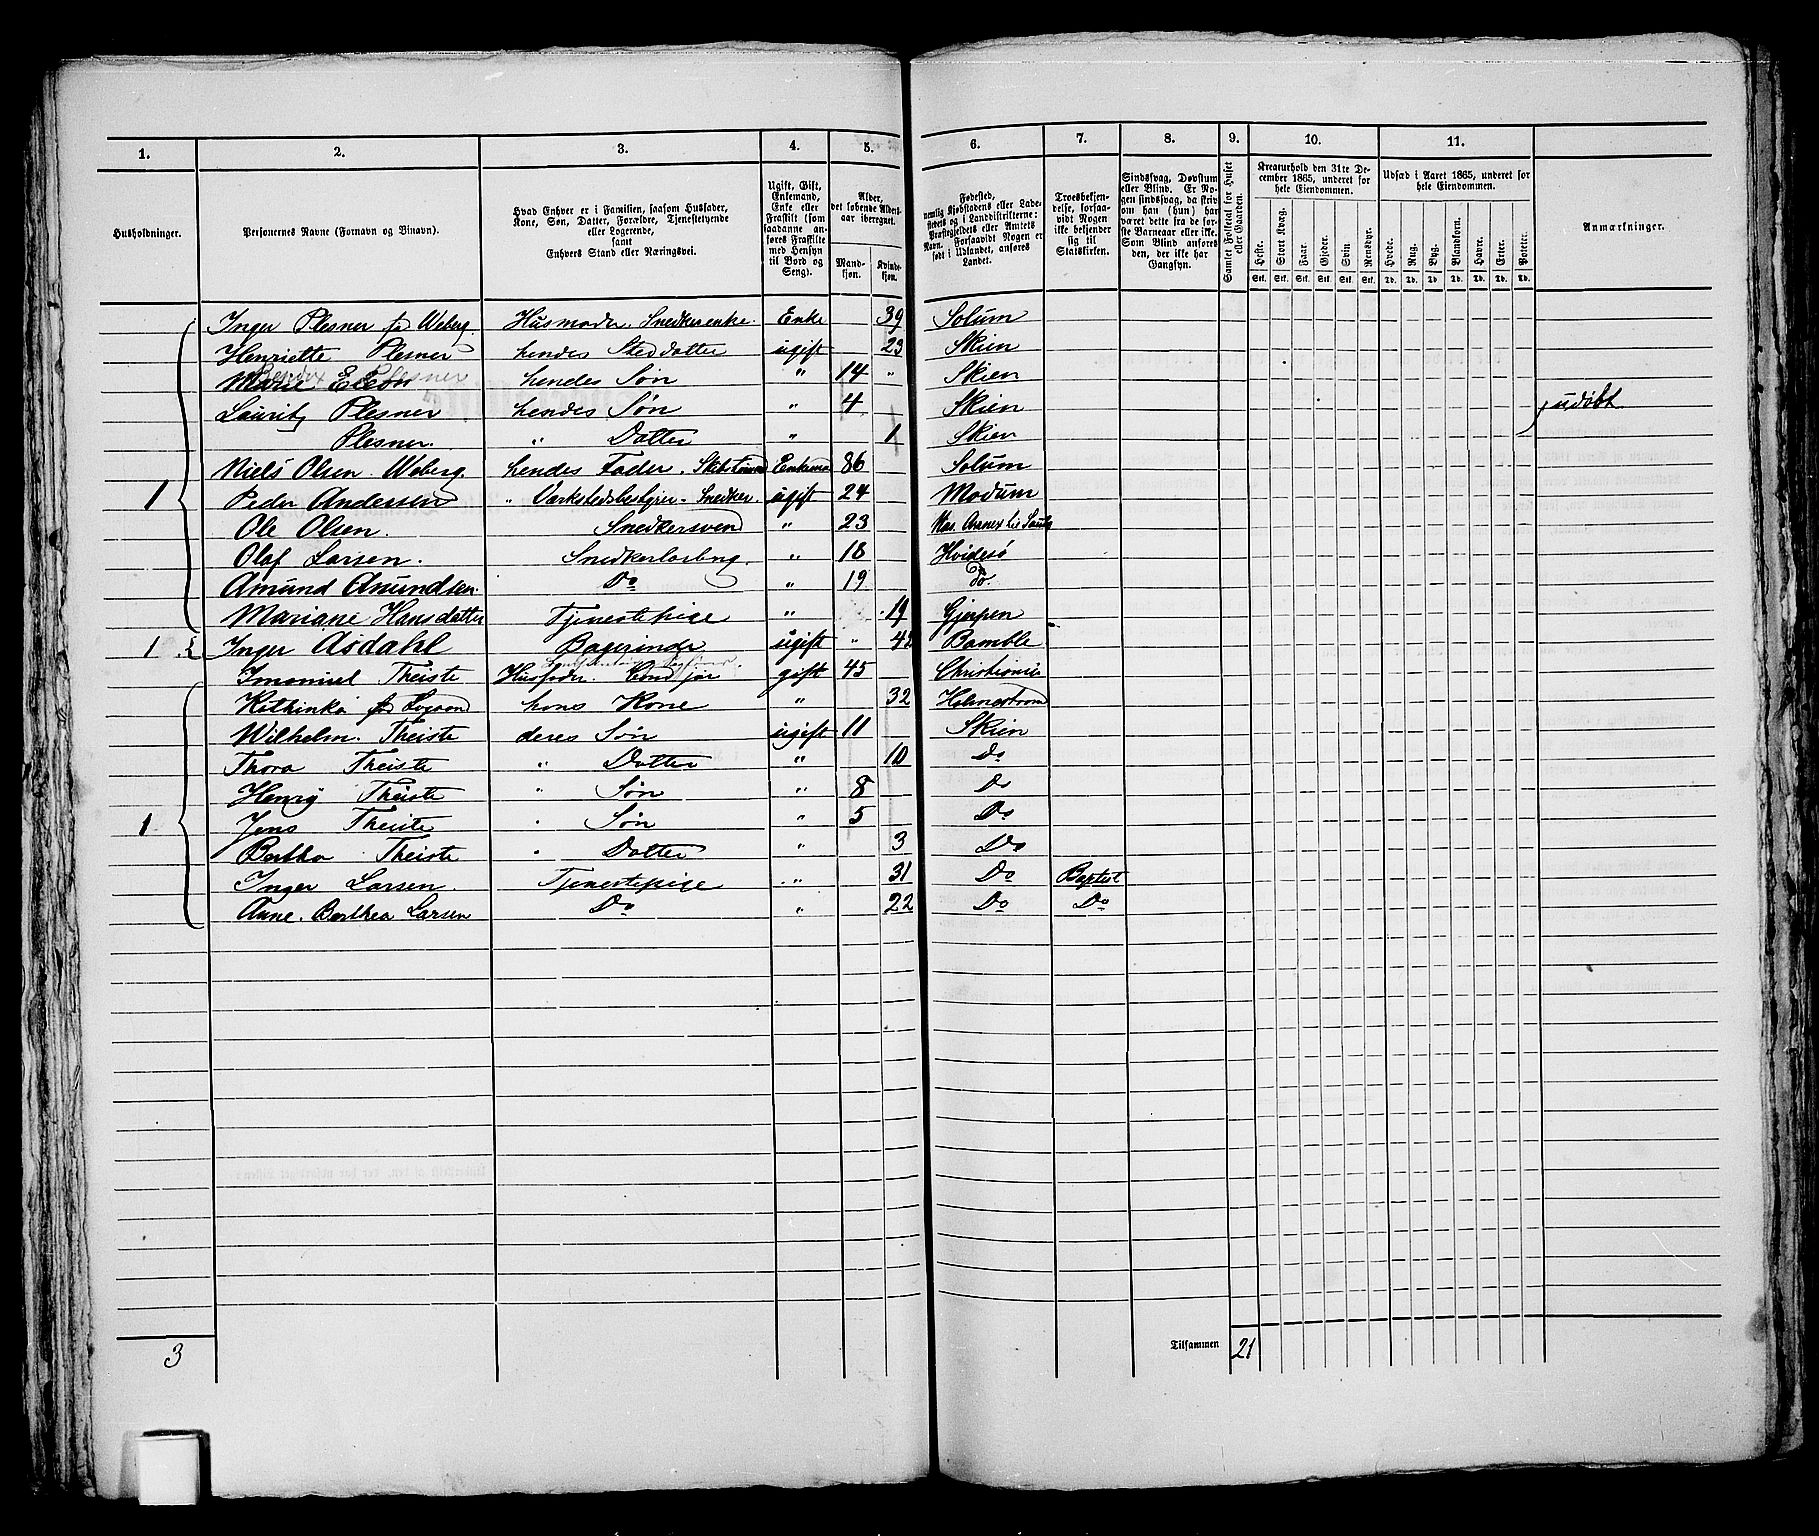 1. 2. 3. 4. 5. 6. 7. 8. 9. 10. 11.
Husholdninger.
Personernes Navne (Fornavn og Binavn).
Hvad Enhver er i Familien, saasom Husfader,
Kone, Søn, Datter, Forældre, Tjenestetyende
eller Logerende,
samt
Enhvers Stand eller Næringsvei.
Ugift, Gift,
Enkemand,
Enke eller
Fraskilt (som
saadanne an-
føres Fraskilte
med Hensyn
til Bord og
Seng).
Alder,
det løbende Alders-
aar iberegnet.
Mand-
kjøn.
Kvinde-
kjøn.
Fødested,
nemlig Kjøbstadens eller Lade-
stedets og i Landdistrikterne:
Præstegjeldets eller Amtets
Navn. Forsaavidt Nogen er
født i Udlandet, anføres
Landet.
Troesbekjen-
delse, forsaa-
vidt Nogen
ikke bekjender
sig til
Statskirken.
Sindssvag, Døvstum
eller Blind. Er No-
gen sindssvag, da skriv
om han (hun) har
været dette fra de før-
ste Barneaar eller ikke.
Som Blind anføres
den, der ikke har
Gangsyn.
Samlet Folketal for Huset
eller Gaarden.
Kreaturhold den 31te De-
cember 1865, underet for
hele Eiendommen.
Heste. Stort Kvæg. Faar. Gjeder. Svin. Rensdyr.
Stk. Stk. Stk. Stk. Stk. Stk.
Udsæd i Aaret 1865, underet for
hele Eiendommen.
Hvede. Rug. Byg. Blandkorn. Havre. Erter. Poteter.
Td. Td. Td. Td. Td. Td. Td.
Anmærkninger.
Inger Plesner fd Weberg. Husmoder. Snedkerenke. Enke 39 Solum
Henriette Plesner hendes Steddatter ugift 23 Skien
Plesner hendes Søn " 14 " Skien
Lauritz Plesner hendes Søn " 4 Skien
Plesner. " Datter " 1 Skien udøbt
Niels Olsen Weberg. hendes Fader. 86 Solum
1 Peder Andersen " Værkstedsbestyrer. Snedker. ugift 24 Modum
Ole Olsen. Snedkersvend " 23
Olaf Larsen. " 18 Hvidesø
Amund Amundsen. Do " 19 Do.
Mariane Hansdatter Tjenestepige " 19 Gjerpen
1 Inger Asdahl Bagerinde ugift " 42 Bamble
Imanuel Theiste Husfader. gift 45 Christiania
Kathinka fd hans Kone " 32 Holmestrand
Wilhelm. Theiste deres Søn ugift 11 Skien
Thora Theiste " Datter " 10 Do
Henry Theiste " Søn " 8 Do
1 Jens Theiste " Søn " 5 Do
Bertha Theiste " Datter " 3 Do
Inger Larsen. Tjenestepige " 31 Do Baptist
Anne. Berthea Larsen Do " 22 Do Do
3
Tilsammen 21